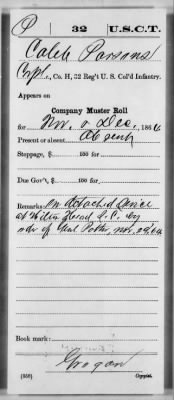 P 32 U.S.C.T.
Caleb Parsons
Corpl., Co. H, 32 Reg't U. S. Col'd Infantry.
Appears on
Company Muster Roll
for Nov. & Dec., 1864
Present or absent Absent
Stoppage, $ 100 for
Due Gov't, $ 100 for
Remarks: On detached Service
at Hilton Head S.C. by
order of Genl Potter, Nov. 29, 64
Book mark:
Grogan
(358) Copyist.